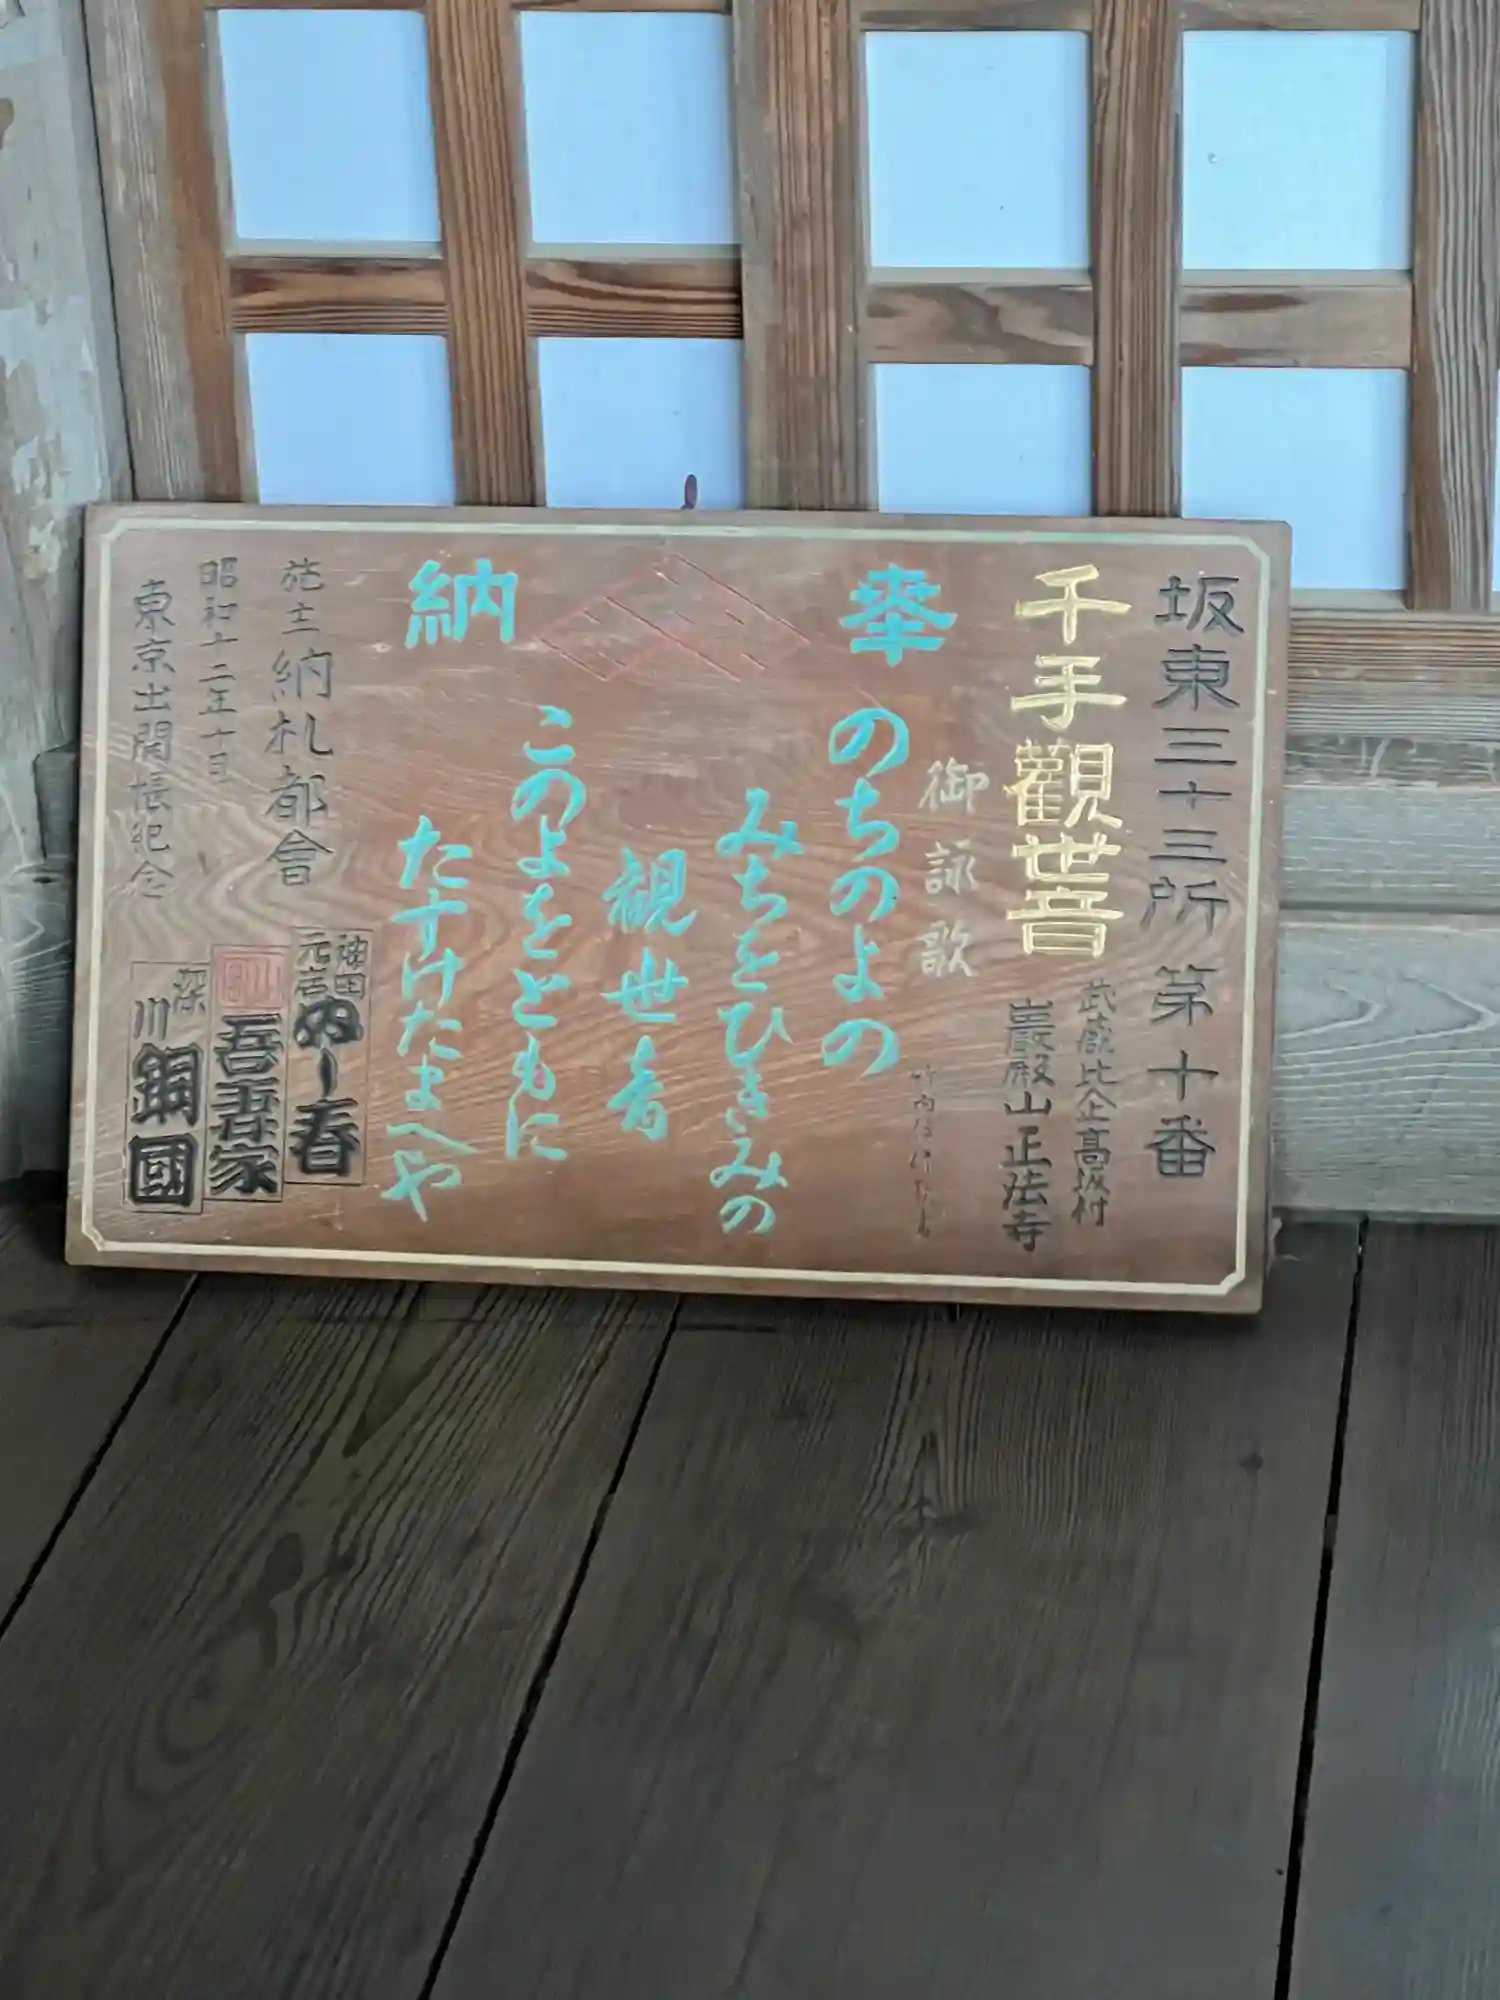 坂東三十三所 第十番
千手觀世音
武蔵比企髙坂村
巌殿山正法寺
御詠歌
奉
のちのよの
みちをひきみの
観世音
このよをともに
たすけたまへや
納
施主 納札都會
昭和十二年十月
東京出開帳紀念
神田
元岩
ぬし春
吾妻家
深川
銅國